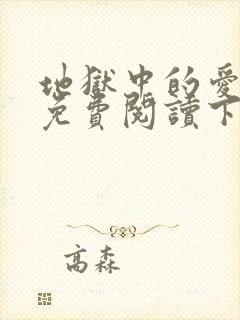 地獄中的愛
免費閱讀下
高森